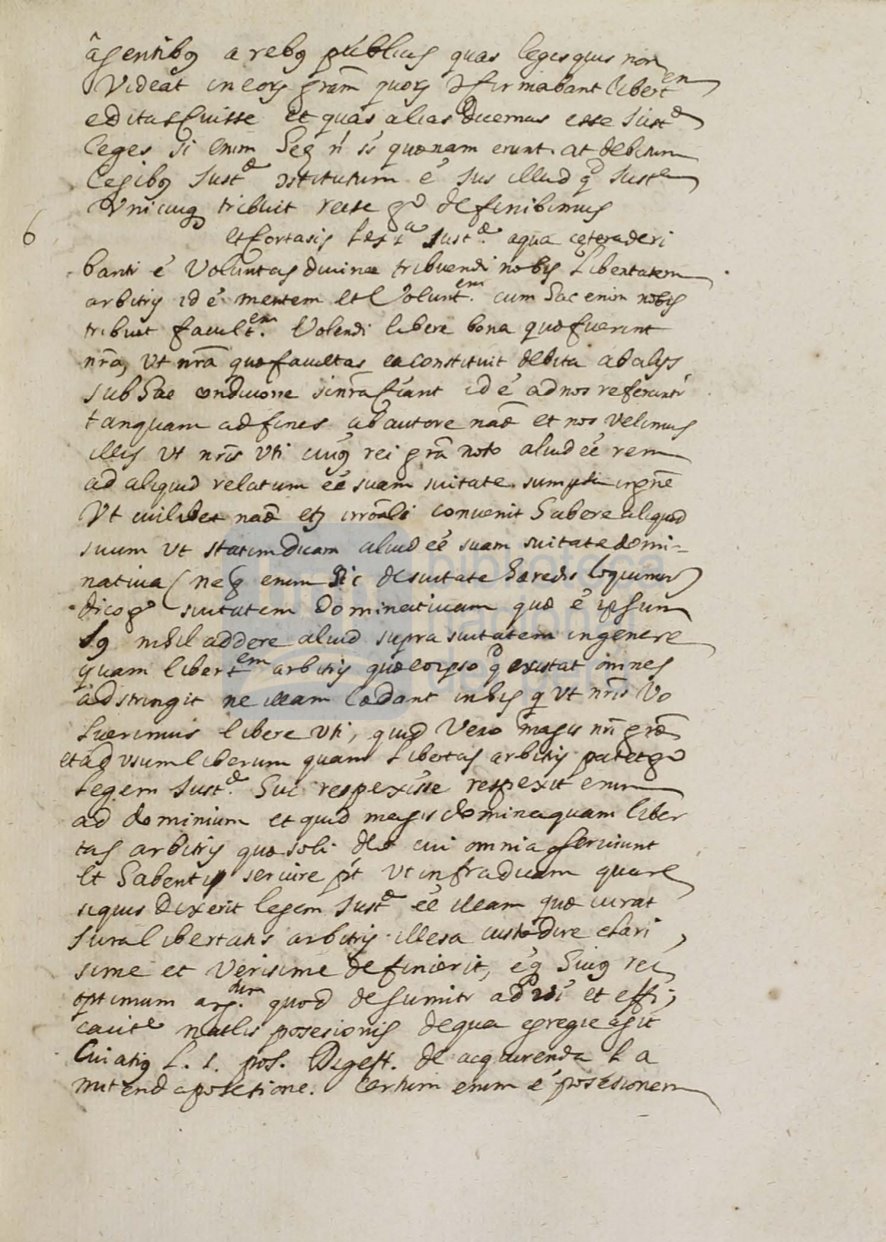 agentibq a rebq publicis quas leges quis non
videat in eorũ grãm quorũ ɔfirmabant libertem
editas fuisse et quas alias dicemus esse Justæ
leges si enim hæ ñ st quænam erunt. at debitum
legibq Justæ ɔstitutum ē Jus illud q̃ Juste
unicuiq tribuit recte go definibimus
6 et fortasis lex 1a Justæ a qua ceteræ deri
banti ē Voluntas divina tribuendi nobis libertatem
arbitrij id ē mentem et Voluntem. cum hac enim nobis
tribuit facultem. Volendi libere bona quæ fuerint
nrã, ut nrã quæ facultas ea constituit debita ab alijs
sub hac condicione si nrã fiant id ē ad nos referanti
tanquam ad fines ab autore naæ et nos velimus
illis ut nris uti cuiq rei grã noto aliud eē rem
ad aliquid relatum eē suam suitate sumpta in gne
ut cuilibet naæ etz irronali convenit habere aliquod
suum ut statim dicam aliud eē suam suitate domi-
nativa (neq enim hic de suitate hæredis loquimur)
dico go suitatem dominativam quæ ē ipsum
Jq nihil addere aliud supra suitatem in genere
quam libertem arbitrij quæ eo ipso q̃ existat omnes
adstringit ne illam lædant in his q̃ ut nris vo
luerimus libere uti, quid vero magis nri grã
et ad usum liberum quam libertas arbitrij patet go
legem Justæ. huc respexisse respexit enim
ad dominium et quid magis domina quam liber
tas arbitrij quæ soli deo cui omnia serviunt
et habenti servire pt ut infra dicam quare
siquis dixerit legem Justæ eē illam quæ curat
Jura libertatis arbitrij illesa custodire clari
sime et verisime definierit, eq huiq rei
optimum argum quod desumitr ad vi et effi;
cacite nullis posesionis de qua egregie agit
Cuiatiq L. 1. pos. Digest. de acquirenda l a
mitenda posesione. Certum enim ē posesionem